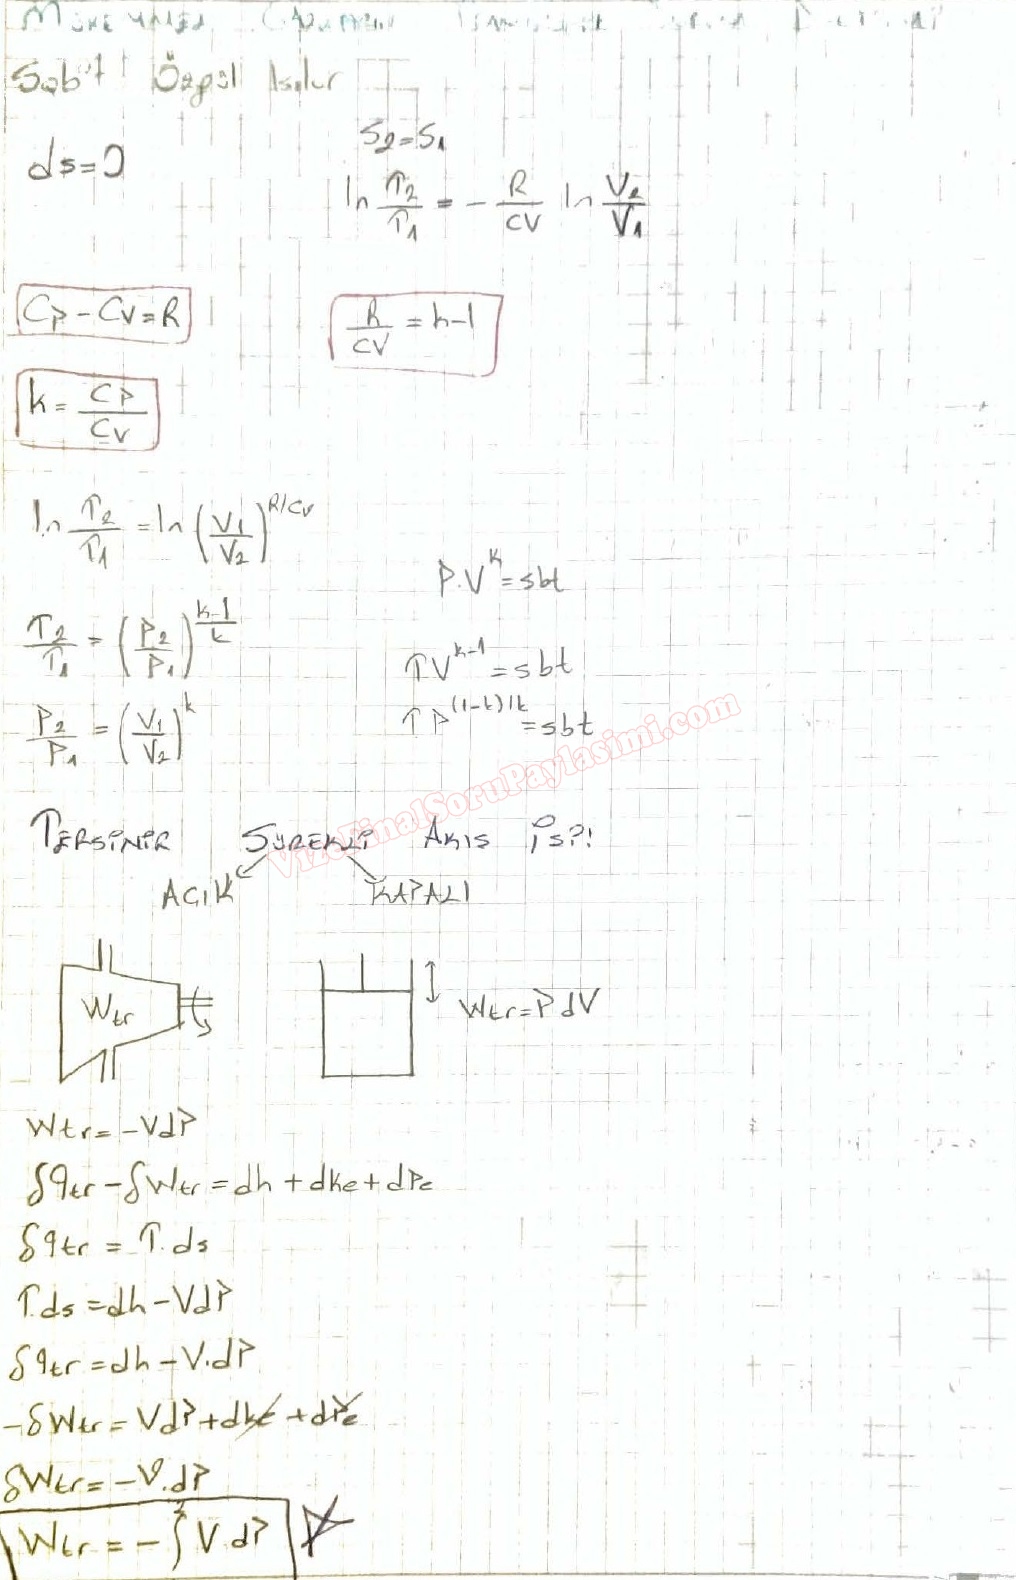 Sabit Özgül Isılar
ds=0
S2=S1
ln T2/T1 = - R/CV ln V2/V1
Cp - Cv = R
R/CV = k-1
k = Cp/Cv
ln T2/T1 = ln (V1/V2)^R/Cv
P.V^k = sbt
T2/T1 = (P2/P1)^(k-1)/k
TV^k-1 = sbt
P2/P1 = (V1/V2)^k
TP^(1-k)/k = sbt
VizeFinalSoruPaylasimi.com
TERSİNİR SÜREKLİ AKIS İş?!
AÇIK KAPALI
Wtr
Wtr=PdV
Wtr=-VdP
δqtr - δWtr = dh + dke + dPe
δqtr = T.ds
T.ds = dh - VdP
δqtr = dh - V.dP
-δWtr = VdP + dke + dPe
δWtr = -V.dP
Wtr = - ∫² V.dP